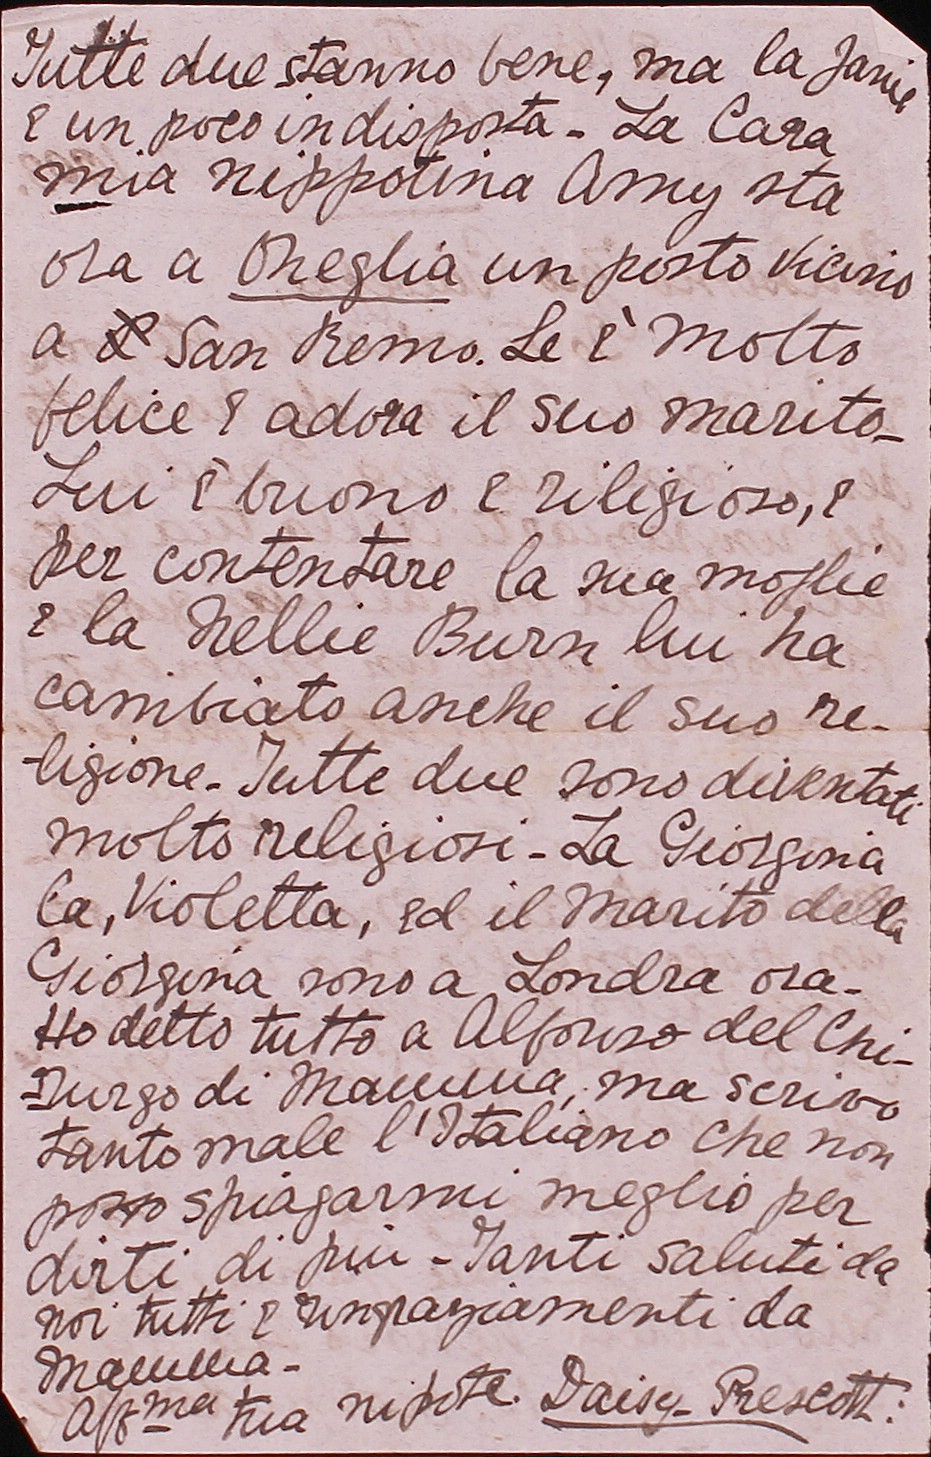 Tutte due stanno bene, ma la Janie
è un poco indisposta - La Cara
mia nippotina Amy sta
ora a Oneglia un posto vicino
a San Remo. Le è molto
felice e adora il suo marito -
Lui è buono e riligioso, e
per contentare la sua moglie
e la Nellie Burn lui ha
cambiato anche il suo re-
-ligione - Tutte due sono diventati
molto religiosi - La Giorgina
la, Violetta, ed il marito della
Giorgina sono a Londra ora -
Ho detto tutto a Alfonso del Chi-
-rurgo di Mamma, ma scrivo
tanto male l'Italiano che non
posso spiagarmi meglio per
dirti di piu - Tanti saluti da
noi tutti e ringraziamenti da
Mamma -
Aff.ma tua nipote. Daisy Prescott.